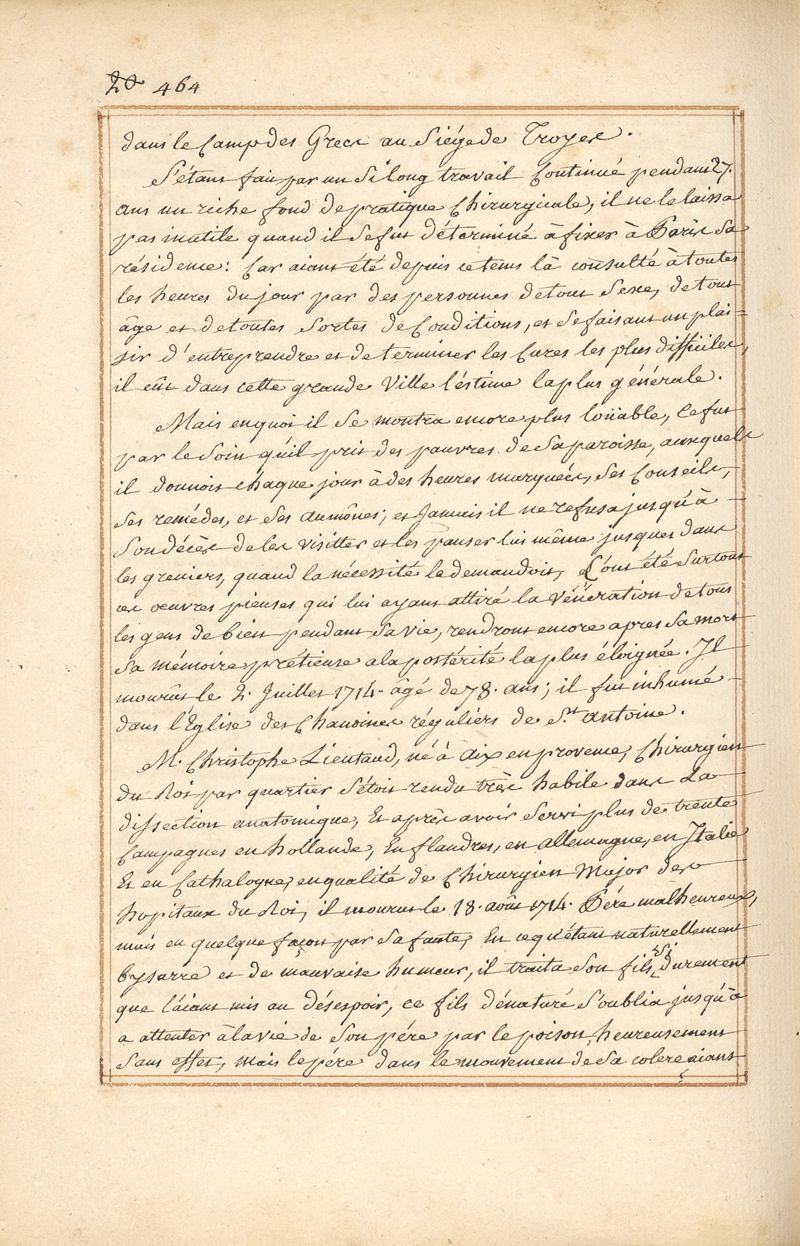 20 464
dans le Camp des Grecs au Siége de Troyes.
S'étant fait par un Si long travail Continué pendant 27.
ans un riche fond de pratique Chirurgicale, il ne le laissa
pas inutile quand il se fut déterminé à fixer à Paris Sa
résidence: Car aiant été depuis ce tems là consulté à toutes
les heures du jour par des personnes de tout Sexe, de tout
âge et de toutes Sortes de Conditions, et se faisant un plai=
sir d'entreprendre et de terminer les Cures les plus difficiles,
il eût dans cette grande Ville l'éstime la plus générale.
Mais en quoi il Se montra encore plus loüable, Ce fut
par le Soin qu'il prit des pauvres de Sa paroisse, auxquels
il donnoit chaque jour à des heures marqueés, Ses Conseils,
Ses remédes, et Ses aumônes; et Jamais il ne refusa jusqu'à
Son décès de les visitter et les panser lui même jusques dans
les greniers, quand la nécessité le demandoit, C'ont été Surtout
ces oeuvres pieuses qui lui ayant attiré la Vénération de tous
les gens de bien pendant Sa vie, rendront encore apres Sa mort
Sa mémoire prétieuse a la postérité la plus éloignée. Il
mourût le 2. Juillet 1714. âgé de 78. ans; il fut inhumé
dans l'Eglise des Chanoines réguliers de S.t Antoine.
M. Christophe Lieutaud, né à Aix en provence, Chirurgien
du Roi par quartier s'étoit rendu très habile dans La
dissection anatomique, Et après avoir Servi plus de trente
Campagnes en hollande, En flandres, en allemagne, en Italie
Et en Cathalogne, en qualité de Chirurgien Major des
hopitaux du Roi, il mourut le 18. août 1714. Pére malheureux,
mais en quelque façon par Sa faute, En ce qu'étant naturellement
bysarre et de mauvaise humeur, il traita Son fils Si durement
que l'aiant mis au désespoir, ce fils dénaturé S'oublia jusqu'à
a attenter à la vie de Son pére par le poison, heureusement
Sans effet, mais le pére dans le mouvement de Sa colere aiant